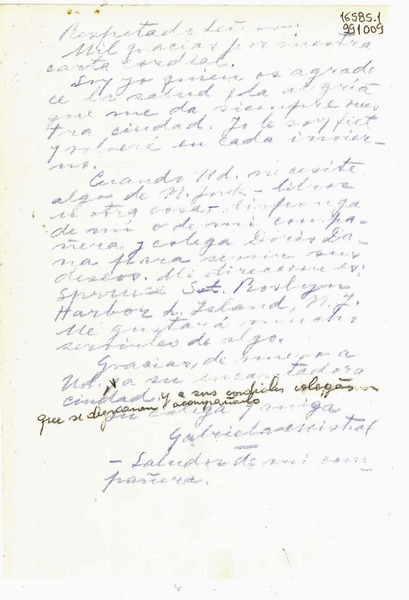 16585.1
991009
Respetado Señor:
Mil gracias por vuestra
carta cordial.
Soy yo quien os agrade
ce la salud y la alegría
que me da siempre vues
tra ciudad. Yo le soy fiel
y volveré en cada invier-
no.
Cuando Ud. necesite
algo de N. York - libros
u otra cosa - disponga
de mí o de mi compa-
ñera y colega Doris Da-
na para servir sus
deseos. Mi dirección es:
Spruce St. Roslyn
Harbor L. Island, N.Y.
Me gustará mucho
serviles de algo.
Gracias, de nuevo a
Ud., a su encantadora
ciudad, y a sus cordiales colegas
que se dignaron acompañarlo
Su colega y amiga
Gabriela Mistral
- Saludos de mi com
pañera.